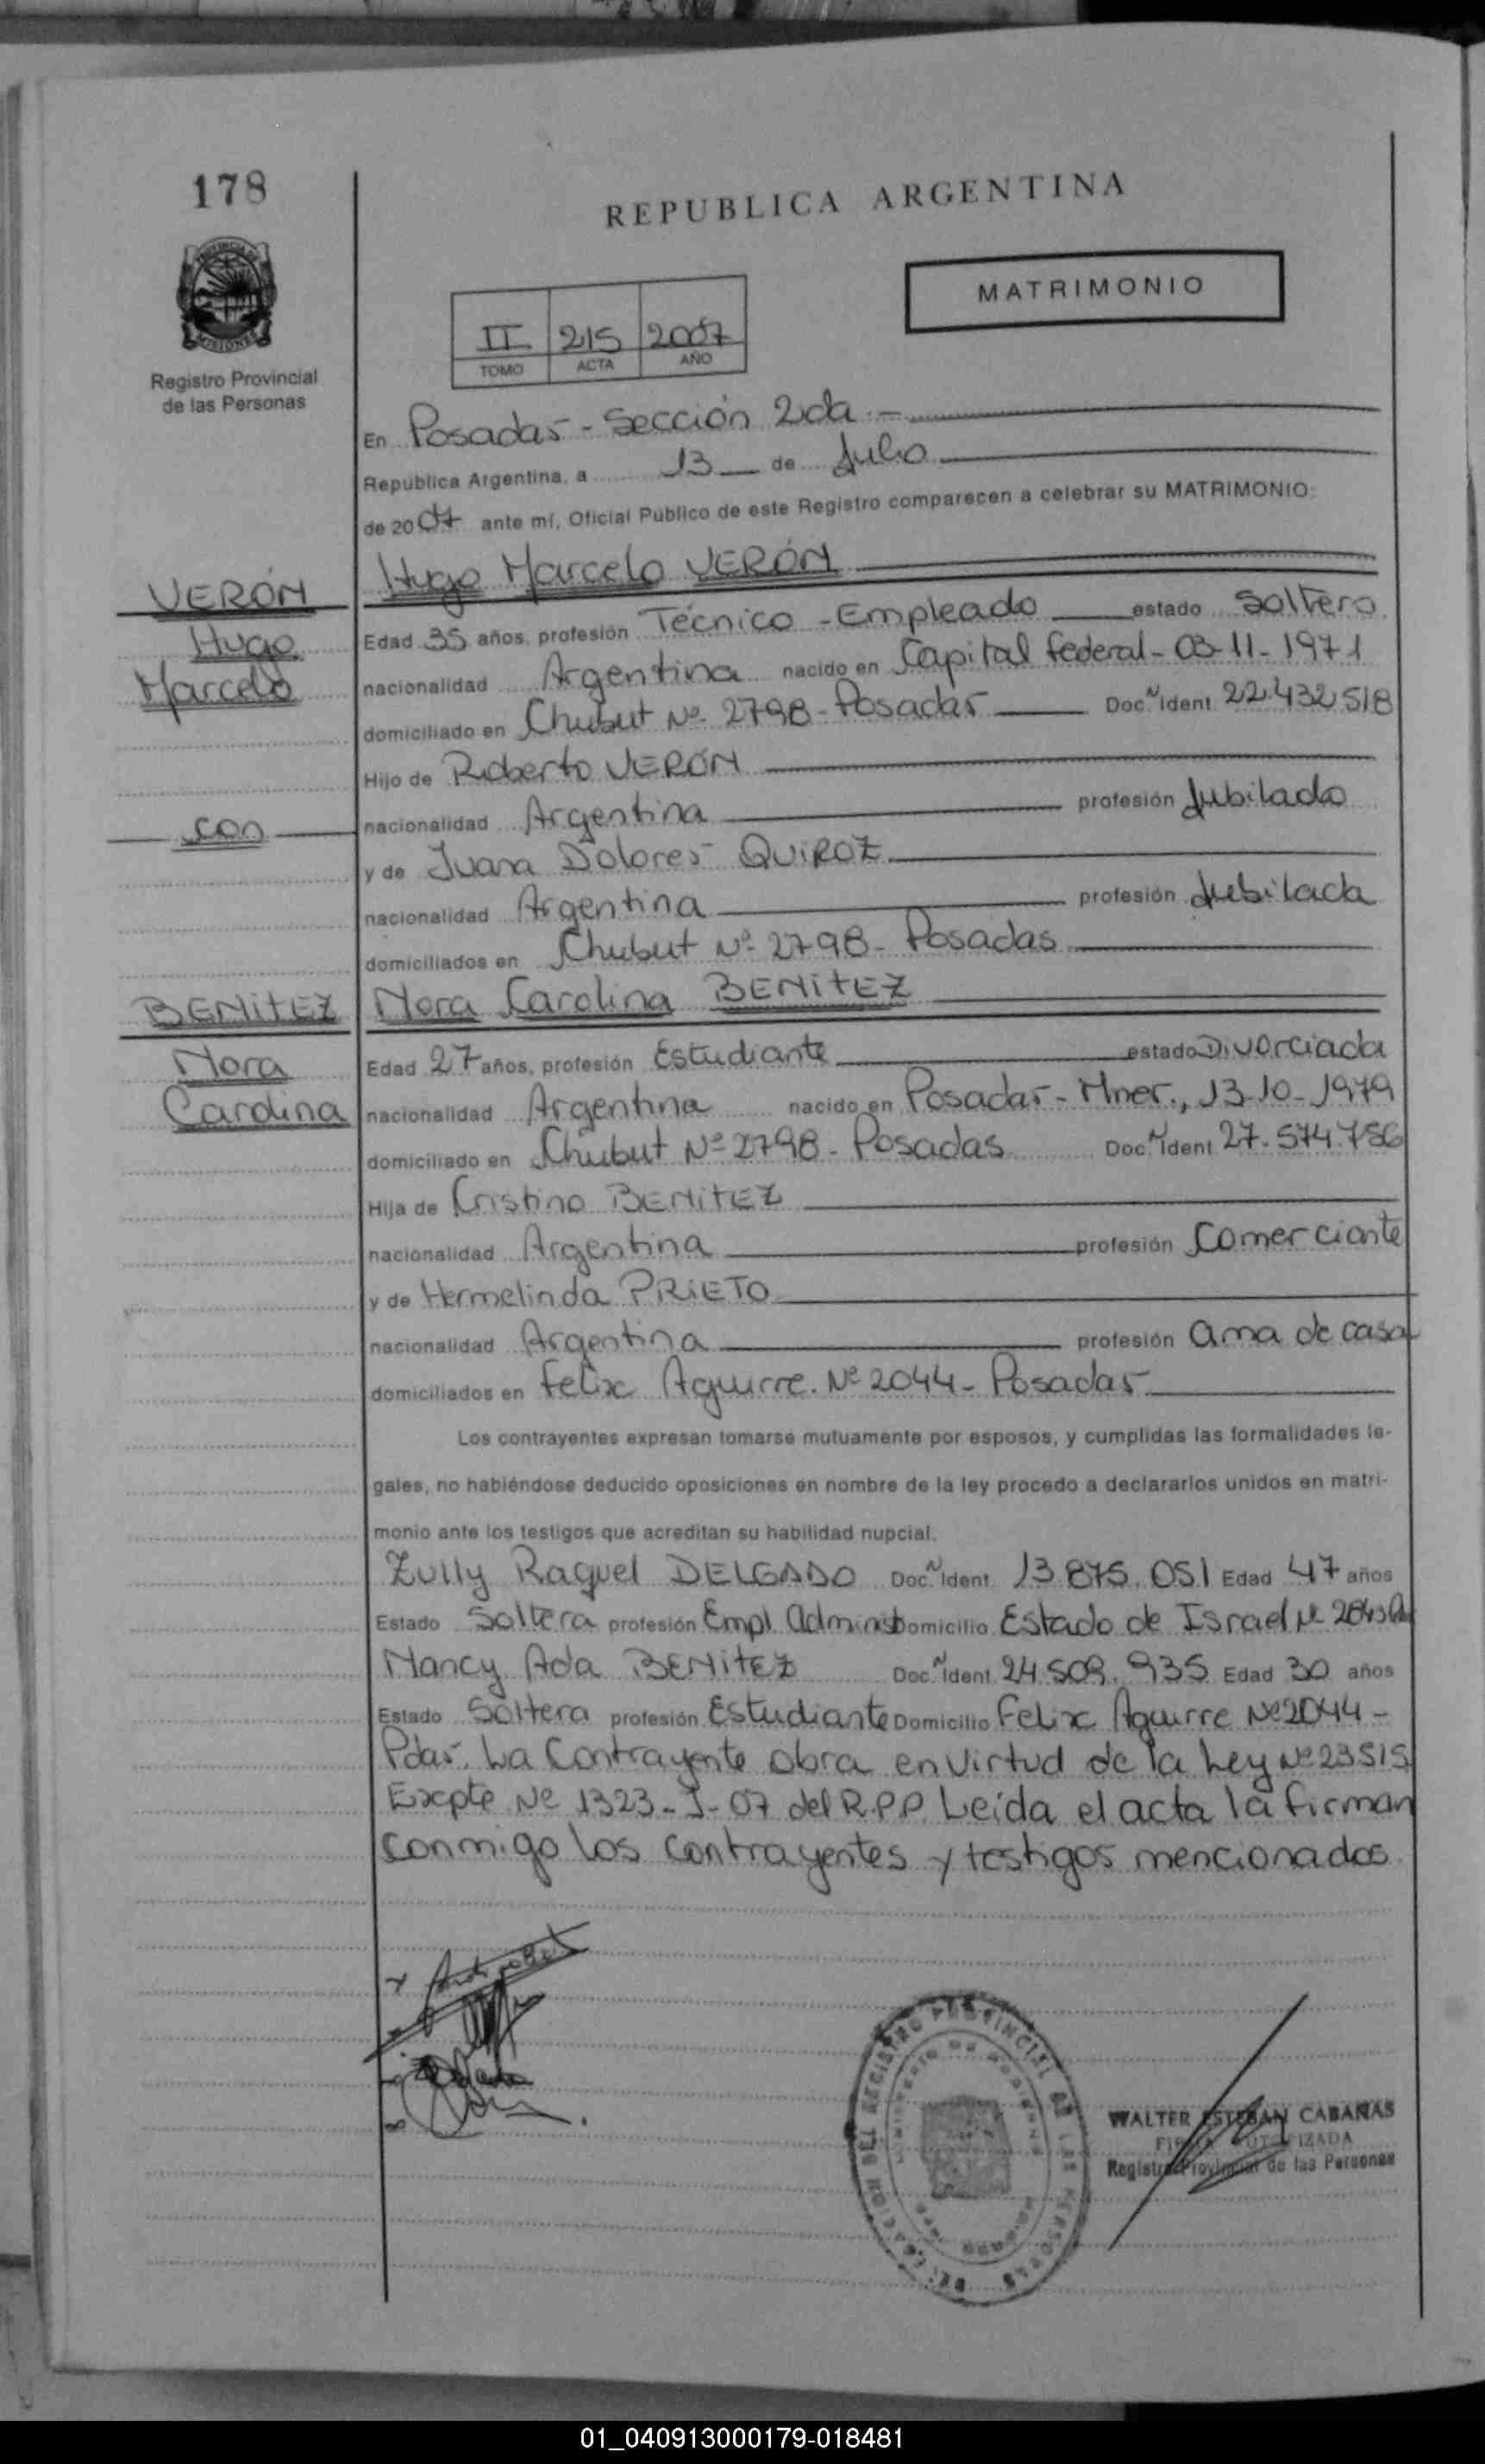 178
REPUBLICA ARGENTINA
MATRIMONIO
PROVINCIA DE
MISIONES
Registro Provincial
de las Personas
II 215 2007
TOMO ACTA AÑO
En Posadas - Sección 2da.-
República Argentina, a 13 de Julio
de 2007 ante mí, Oficial Público de este Registro comparecen a celebrar su MATRIMONIO:
VERÓN
Hugo
Marcelo
con
BENITEZ
Nora
Carolina
Hugo Marcelo VERÓN
Edad 35 años, profesión Técnico - Empleado estado Soltero
nacionalidad Argentina nacido en Capital Federal - 03-11-1971
domiciliado en Chubut Nº 2798 - Posadas Doc. N Ident. 22.432.518
Hijo de Roberto VERÓN
nacionalidad Argentina profesión Jubilado
y de Juana Dolores QUIROZ
nacionalidad Argentina profesión Jubilada
domiciliados en Chubut Nº 2798 - Posadas
Nora Carolina BENITEZ
Edad 27 años, profesión Estudiante estado Divorciada
nacionalidad Argentina nacido en Posadas - Mnes., 13-10-1979
domiciliado en Chubut Nº 2798 - Posadas Doc. N Ident. 27.574.756
Hija de Cristino BENITEZ
nacionalidad Argentina profesión Comerciante
y de Hermelinda PRIETO
nacionalidad Argentina profesión ama de casa
domiciliados en Felix Aguirre Nº 2044 - Posadas
Los contrayentes expresan tomarse mutuamente por esposos, y cumplidas las formalidades le-
gales, no habiéndose deducido oposiciones en nombre de la ley procedo a declararlos unidos en matri-
monio ante los testigos que acreditan su habilidad nupcial.
Zully Raquel DELGADO Doc. N Ident. 13.875.051 Edad 47 años
Estado Soltera profesión Empl. Administ Domicilio Estado de Israel Nº
Nancy Ada BENITEZ Doc. N Ident. 24.509.935 Edad 30 años
Estado Soltera profesión Estudiante Domicilio Felix Aguirre Nº 2044 -
Pdas. La Contrayente obra en virtud de la Ley Nº 23515
Expte Nº 1323-J-07 del R.P.P. Leída el acta la firman
conmigo los contrayentes y testigos mencionados.
DELEGACION DEL REGISTRO PROVINCIAL DE LAS PERSONAS
WALTER ESTEBAN CABAÑAS
FIRMA AUTORIZADA
Registro Provincial de las Personas
01_040913000179-018481